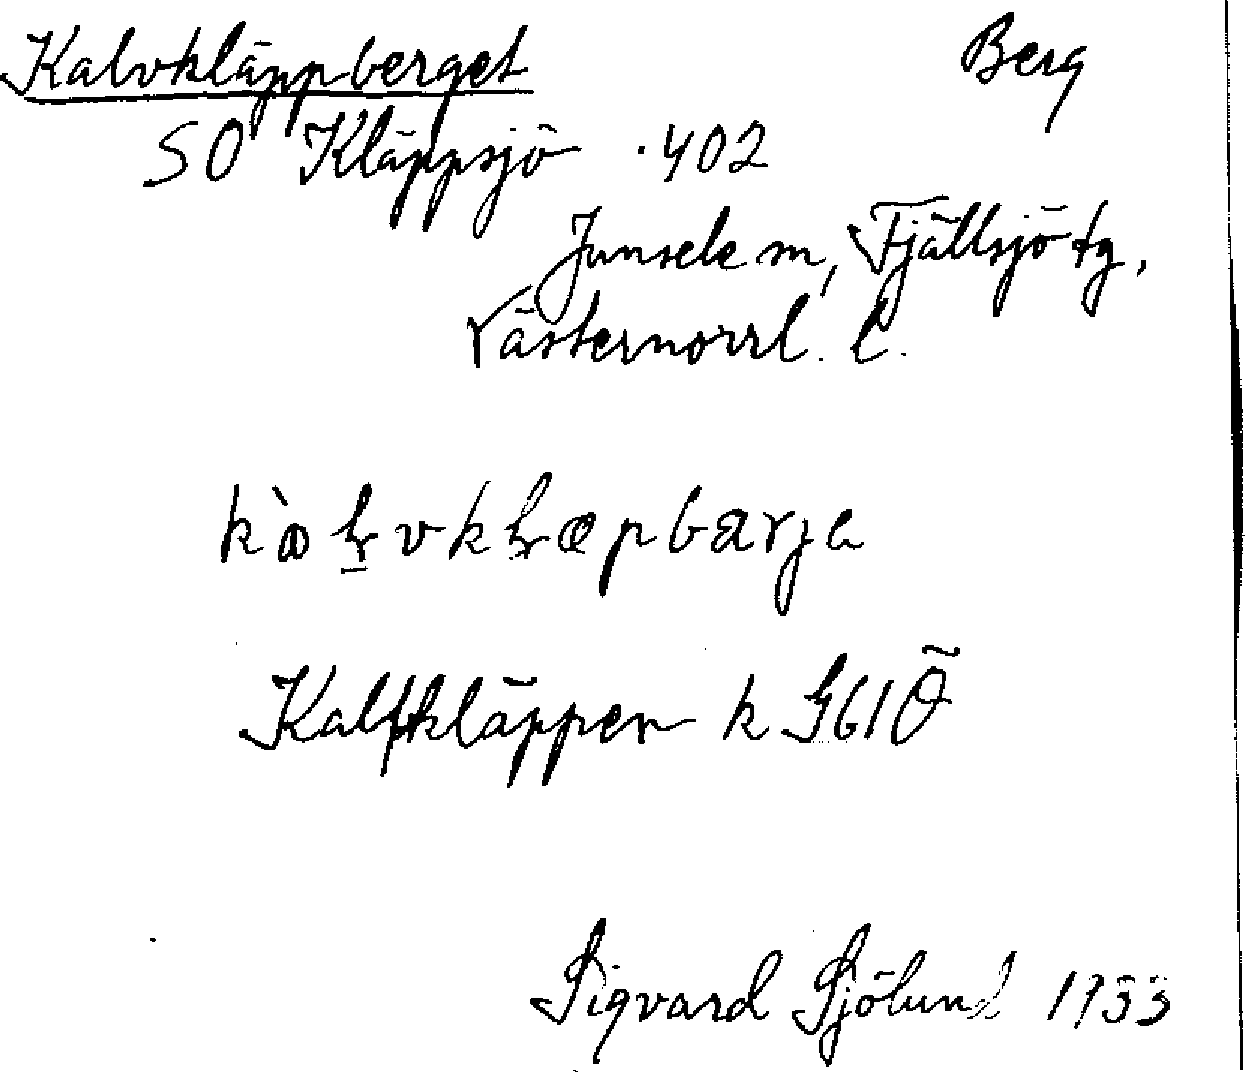 Kalvkläppberget Berg
SO Kläppsjö ·402
Junsele sn, Fjällsjö tg,
Västernorrl. l.
Kalfkläppen k G61Ö
Sigvard Sjölund 1933